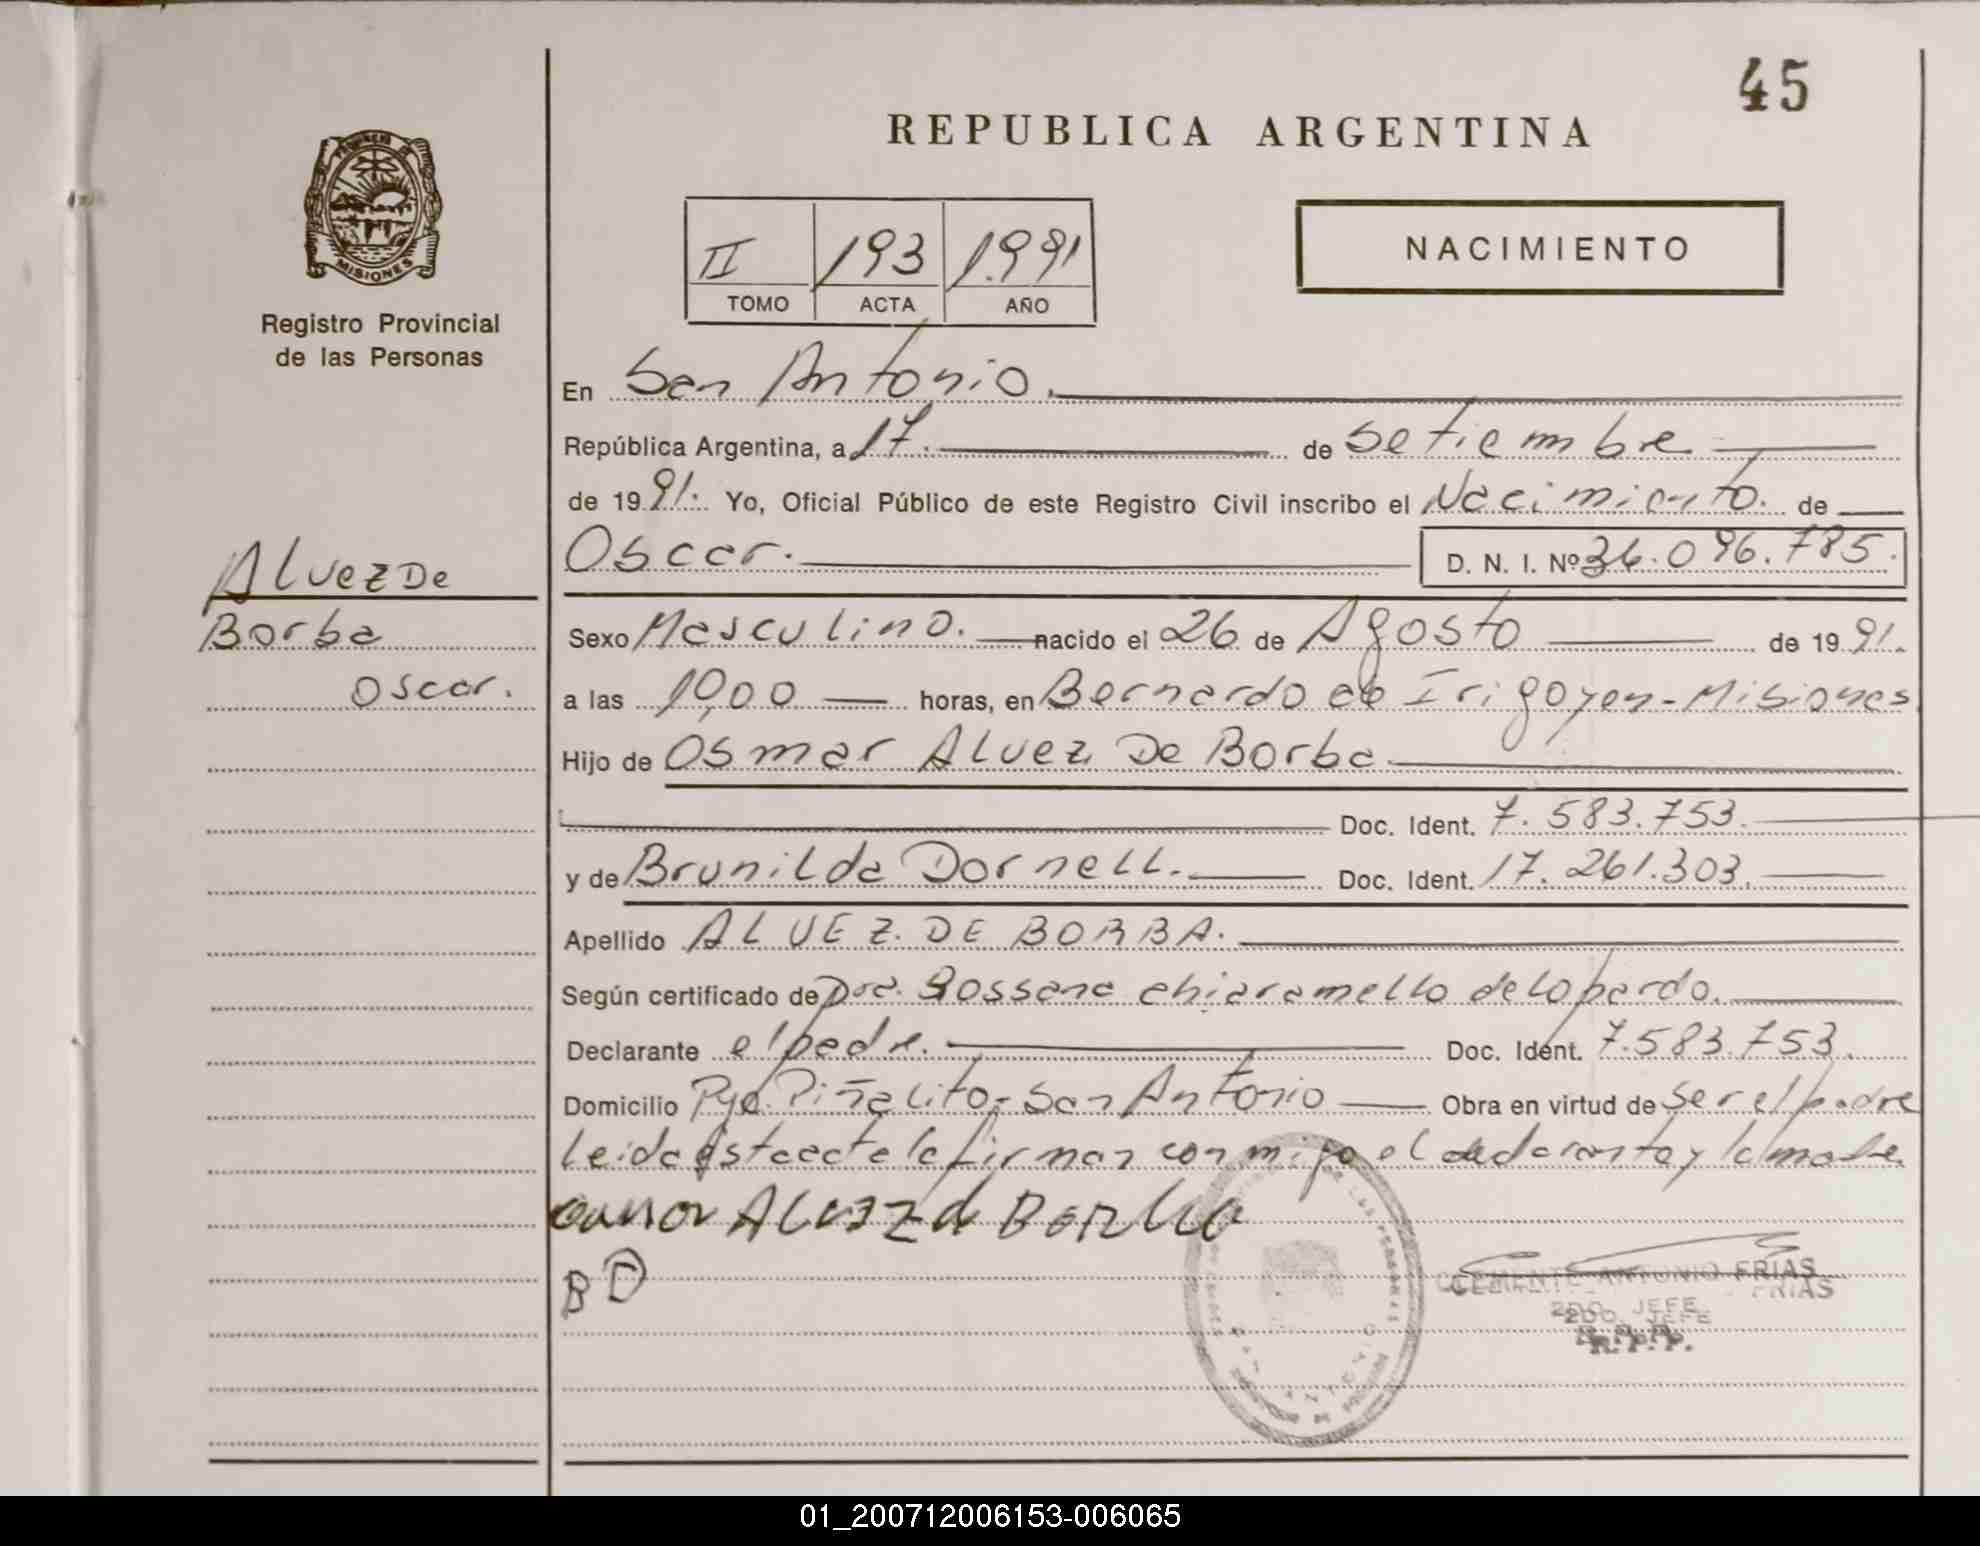 45
REPUBLICA ARGENTINA
MISIONES
Registro Provincial
de las Personas
II 193 1.991
TOMO ACTA AÑO
NACIMIENTO
En San Antonio.
República Argentina, a 17. de Setiembre
de 19 91. Yo, Oficial Público de este Registro Civil inscribo el Nacimiento. de
Oscar. D. N. I. Nº 36.096.785.
Alvez De
Borba
Oscar.
Sexo Masculino. nacido el 26 de Agosto de 19 91.
a las 10,00 horas, en Bernardo de Irigoyen - Misiones
Hijo de Osmar Alvez De Borba
Doc. Ident. 7.583.753.
y de Brunilda Dornell. Doc. Ident. 17.261.303.
Apellido ALVEZ DE BORBA.
Según certificado de Dra. Rossana chiaramello de Lopardo.
Declarante el padre. Doc. Ident. 7.583.753.
Domicilio Pje. Piñalito - San Antonio Obra en virtud de ser el padre
Leida esta acta la firman con migo el declarante y la madre
Alvez d Borba
B D
CLEMENTE ANTONIO FRIAS
2DO. JEFE
R.P.P.
01_200712006153-006065